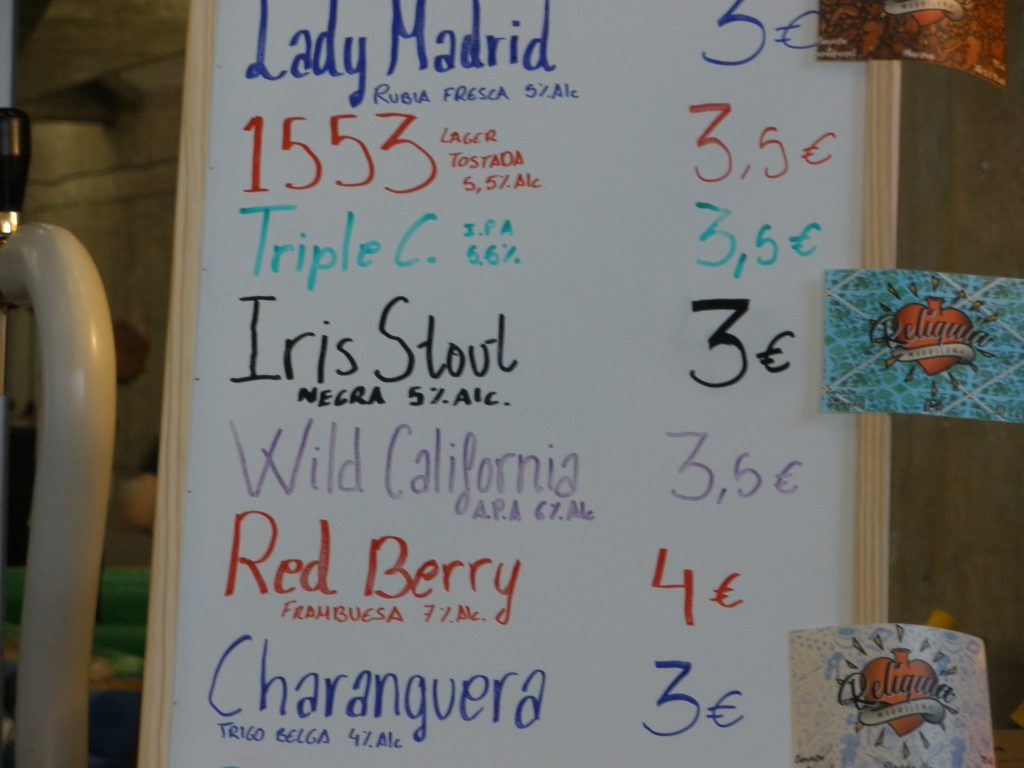 Lady Madrid 3€
RUBIA FRESCA 5%Alc
1553 LAGER TOSTADA 5,5%Alc 3,5€
Triple C. I.P.A 6,6% 3,5€
Iris Stout 3€
NEGRA 5%Alc.
Wild California 3,5€
A.P.A 6%Alc
Red Berry 4€
FRAMBUESA 7%Alc.
Charanguera 3€
TRIGO BELGA 4%Alc
Reliquia
MADRILEÑA
Reliquia
MADRILEÑA